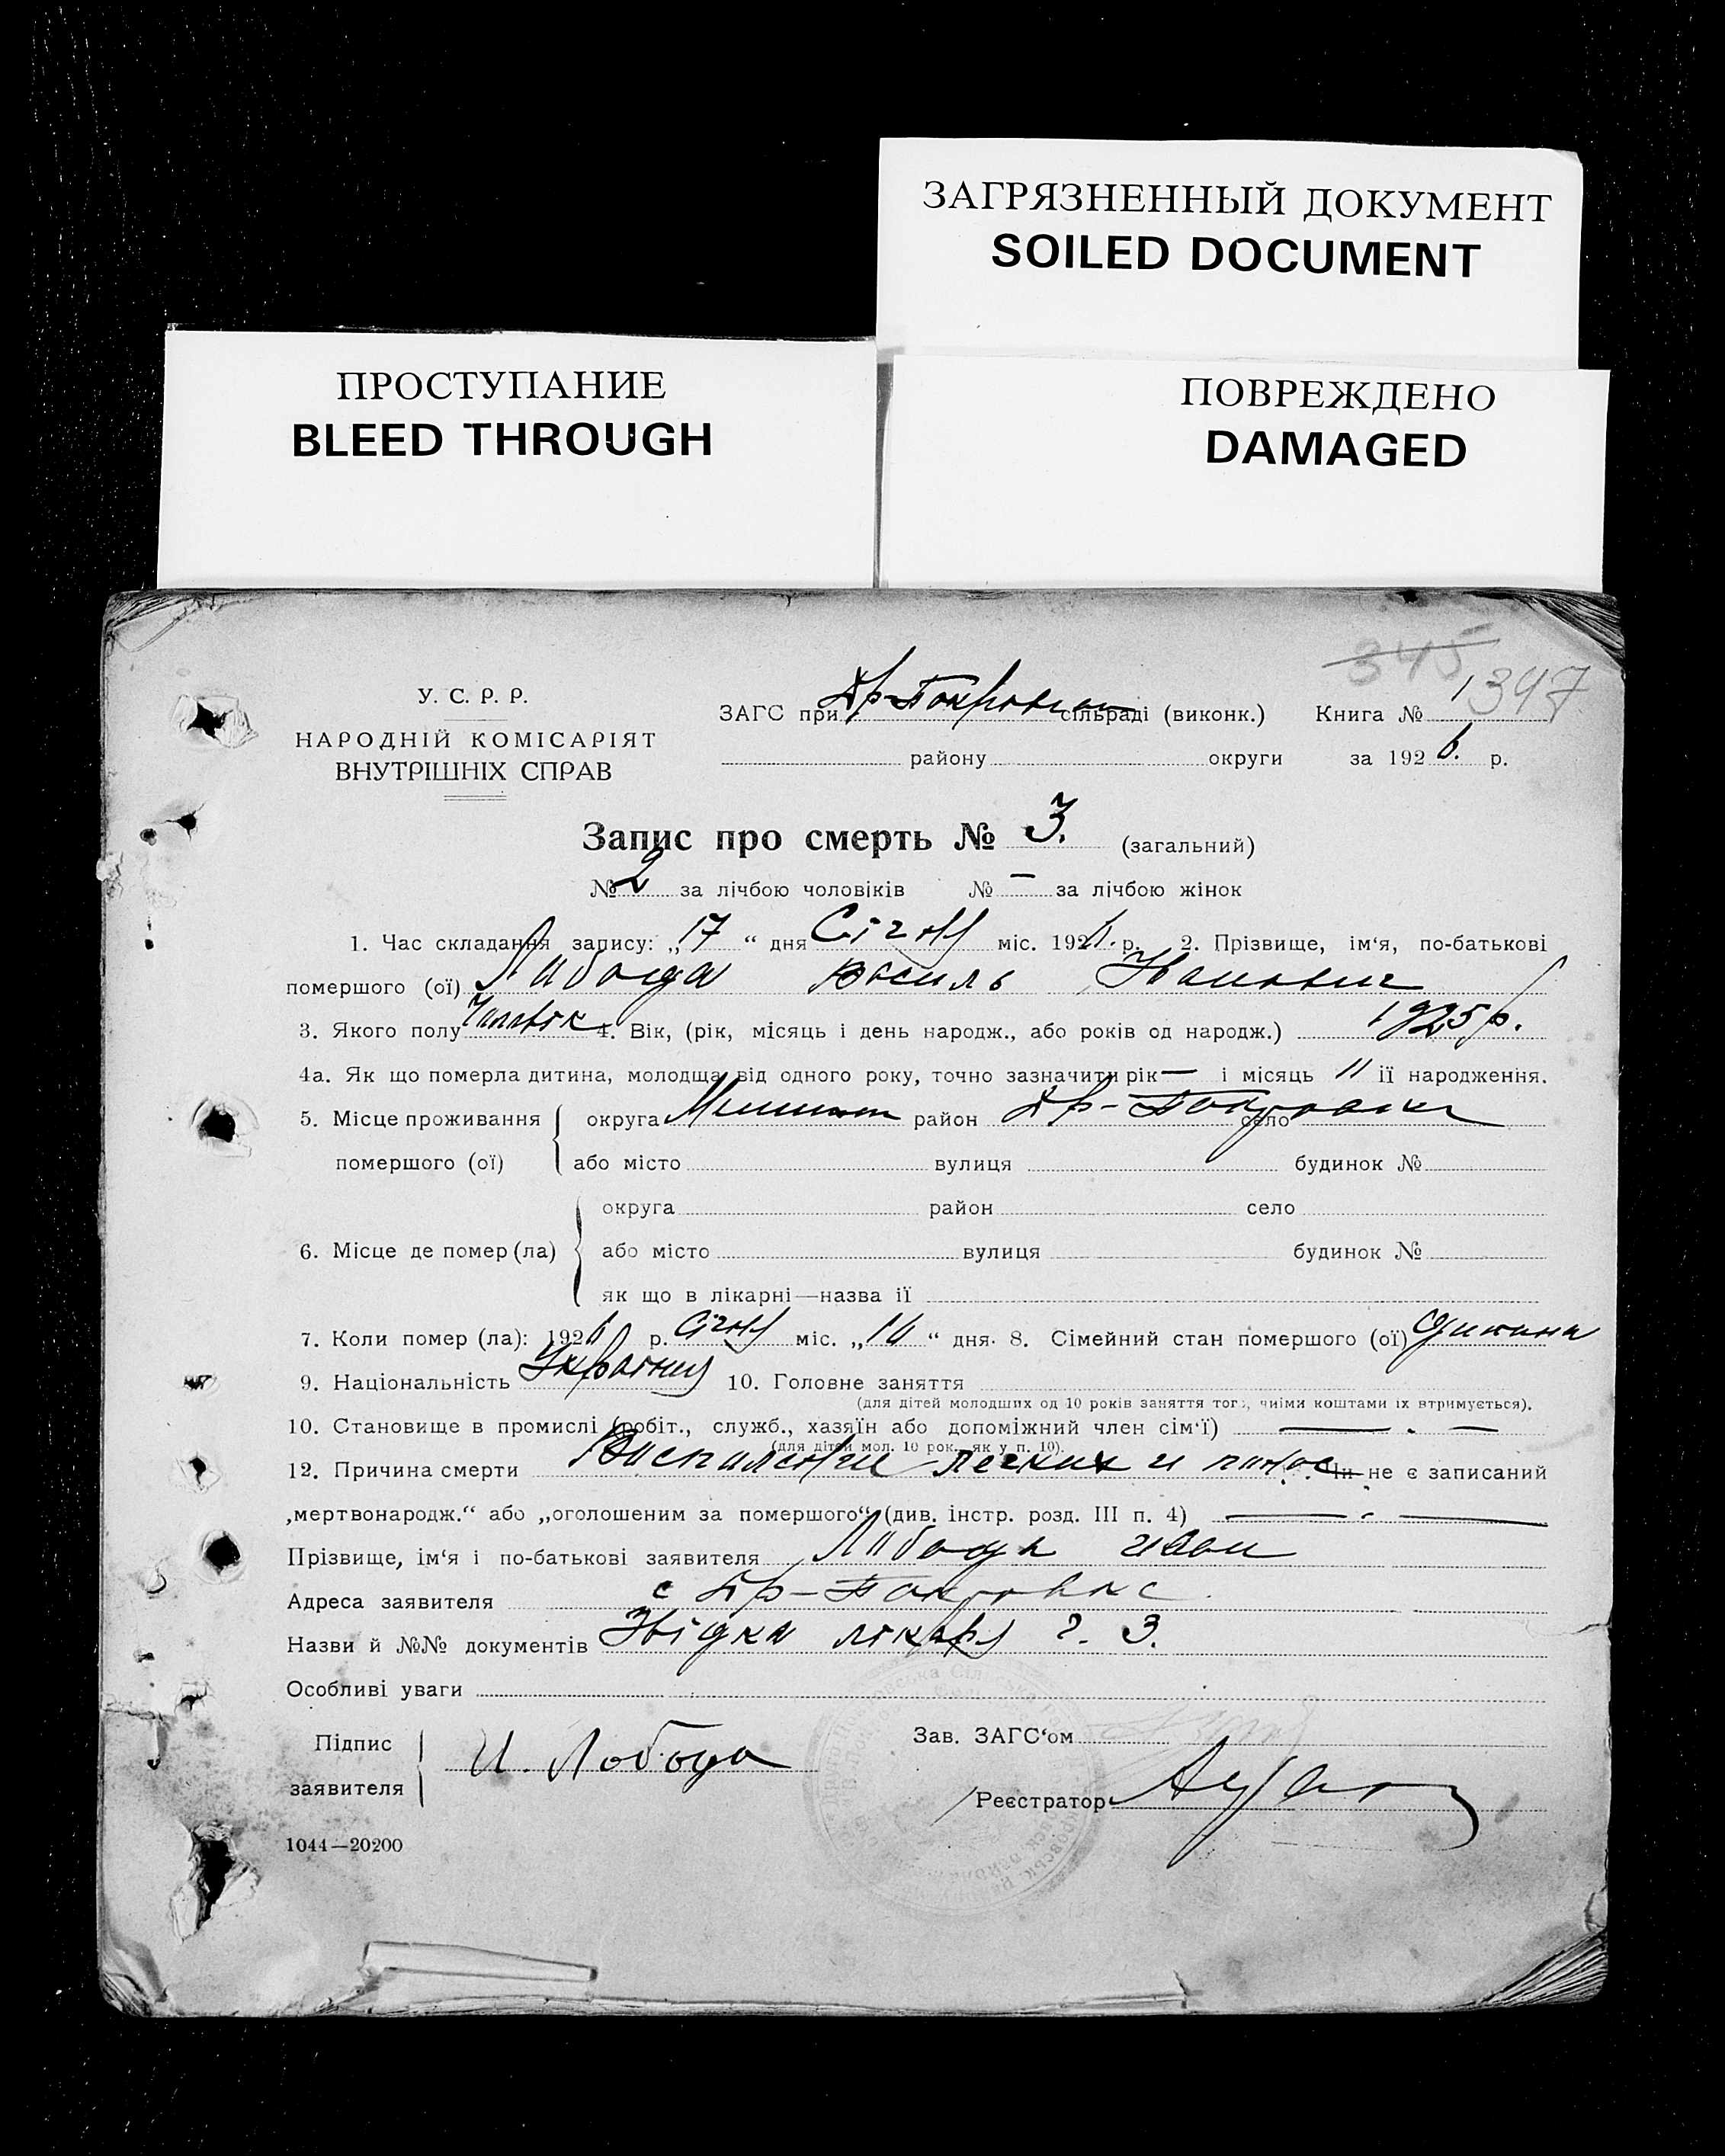 ЗАГРЯЗНЕННЫЙ ДОКУМЕНТ
SOILED DOCUMENT
ПРОСТУПАНИЕ
BLEED THROUGH
ПОВРЕЖДЕНО
DAMAGED
345
1347
У. С. Р. Р.
НАРОДНІЙ КОМІСАРІЯТ
ВНУТРІШНІХ СПРАВ
ЗАГС при Др-Покровськ сільраді (виконк.) Книга № 1
району округи за 1926. р.
Запис про смерть № 3. (загальний)
№ 2 за лічбою чоловіків № — за лічбою жінок
1. Час складання запису: „17“ дня Січня міс. 1926 р. 2. Прізвище, ім‘я, по-батькові
помершого (ої) Лабода Василь Иванович
3. Якого полу Чоловік 4. Вік, (рік, місяць і день народж., або років од народж.) 1925 р.
4а. Як що померла дитина, молодща від одного року, точно зазначити рік — і місяць 11 її народження.
5. Місце проживання округа район Др-Покровка село
помершого (ої) або місто вулиця будинок №
округа район село
6. Місце де помер (ла) або місто вулиця будинок №
як що в лікарні—назва її
7. Коли помер (ла): 1926 р. Січня міс. „16“ дня. 8. Сімейний стан помершого (ої) Одинока
9. Національність Українец 10. Головне заняття
(для дітей молодших од 10 років заняття того, чиїми коштами їх втримується).
10. Становище в промислі (робіт., служб., хазяїн або допоміжний член сім‘ї) — . —
(для дітей мол. 10 рок. як у п. 10).
12. Причина смерти Воспаление легких и понос Чи не є записаний
„мертвонародж.“ або „оголошеним за помершого“ (див. інстр. розд. III п. 4) — . —
Прізвище, ім‘я і по-батькові заявителя Лабода Иван
Адреса заявителя с Др-Покровка
Назви й №№ документів Звідка лікаря з. 3.
Особливі уваги
Підпис
заявителя И. Лобода
Зав. ЗАГС‘ом
Реєстратор
1044—20200